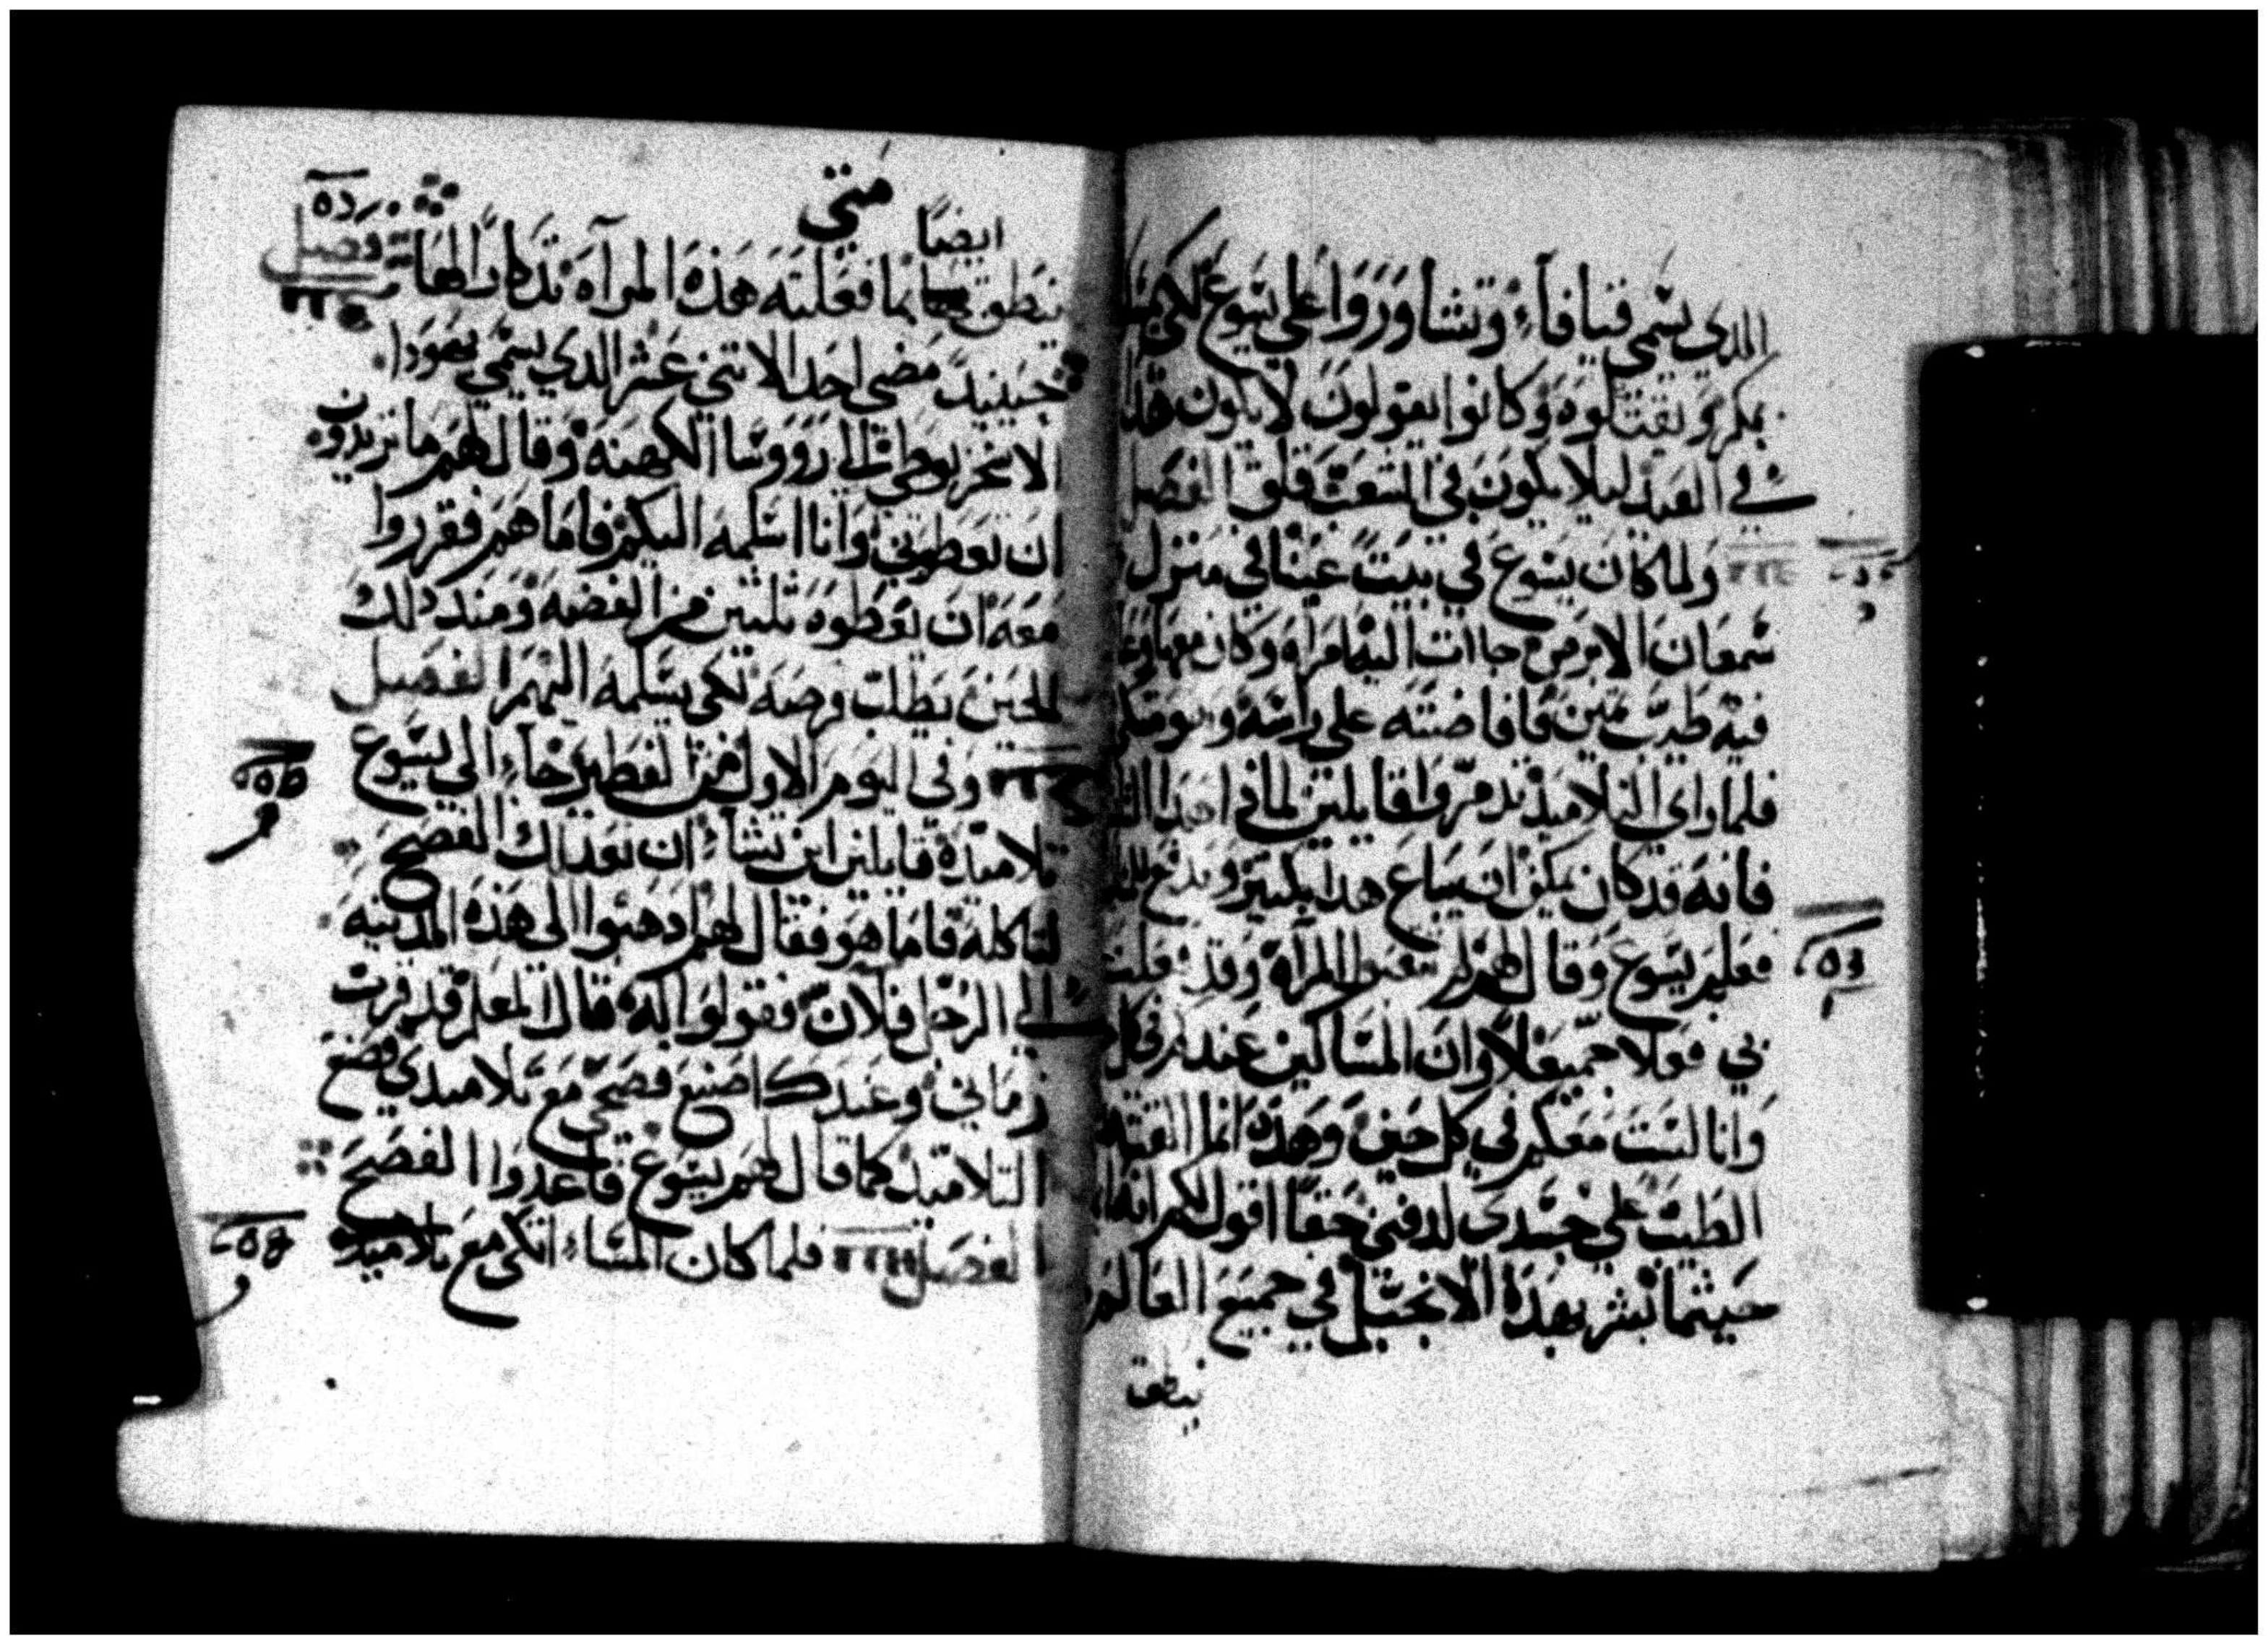 الدي يسمي قيافاء وتشاوروا على يسوع لكي
بمكر ويقتلوه وكانوا يقولون لا يكون هدا
في العيد ليلا يكون في الشعب قلق الفصل
ولما كان يسوع في بيت عنيا في منزل
شمعان الابرص جاات اليه امراه وكان معها وعا
فيه طيب مين فافاضته على راسه وهو متكي
فلما راي التلاميذ تدمروا قايلين لماني
فانه قد كان يمكن ان يباع هدا بكتير ويدفع
فعلم يسوع وقال لهم لم المرآة وقد فعلت
بي فعلا جميعلا وان المساكين عندكم في كل
وانا لست معكم في كل حين وهده انما القته
الطيب على جسدي لدفني حقا اقول لكم انه
حيثما بشر بهده الانجيل في جميع العالم
ينطق
متى
ايضا
ينطق بما فعلته هذه المرآه تذكارا لها فصل
حينيد مضى احد الاتني عشر الدي يسمي يهودا
الاسخريوطي الى رووسا الكهنه وقال لهم ما تريدون
ان تعطوني وانا اسلمه اليكم فاما هم فقرروا
معه ان يعطوه تلتين من الفضه ومند دلك
الحين يطلب فرصه لكي يسلمه اليهم الفصل
وفي اليوم الاول من الفطير جاء الى يسوع
تلاميده قايلين اين تشاء ان نعد لك الفصح
لتاكله فاما هو فقال لهم ادهبوا الى هذه المدينه
الى الرجل فلان فقولوا له قال المعلم قد قرب
زماني وعندك اصنع فصحي مع تلاميدي فصنع
التلاميد كما قال لهم يسوع فاعدوا الفصح
الفصل فلما كان المساء اتكى مع تلاميده